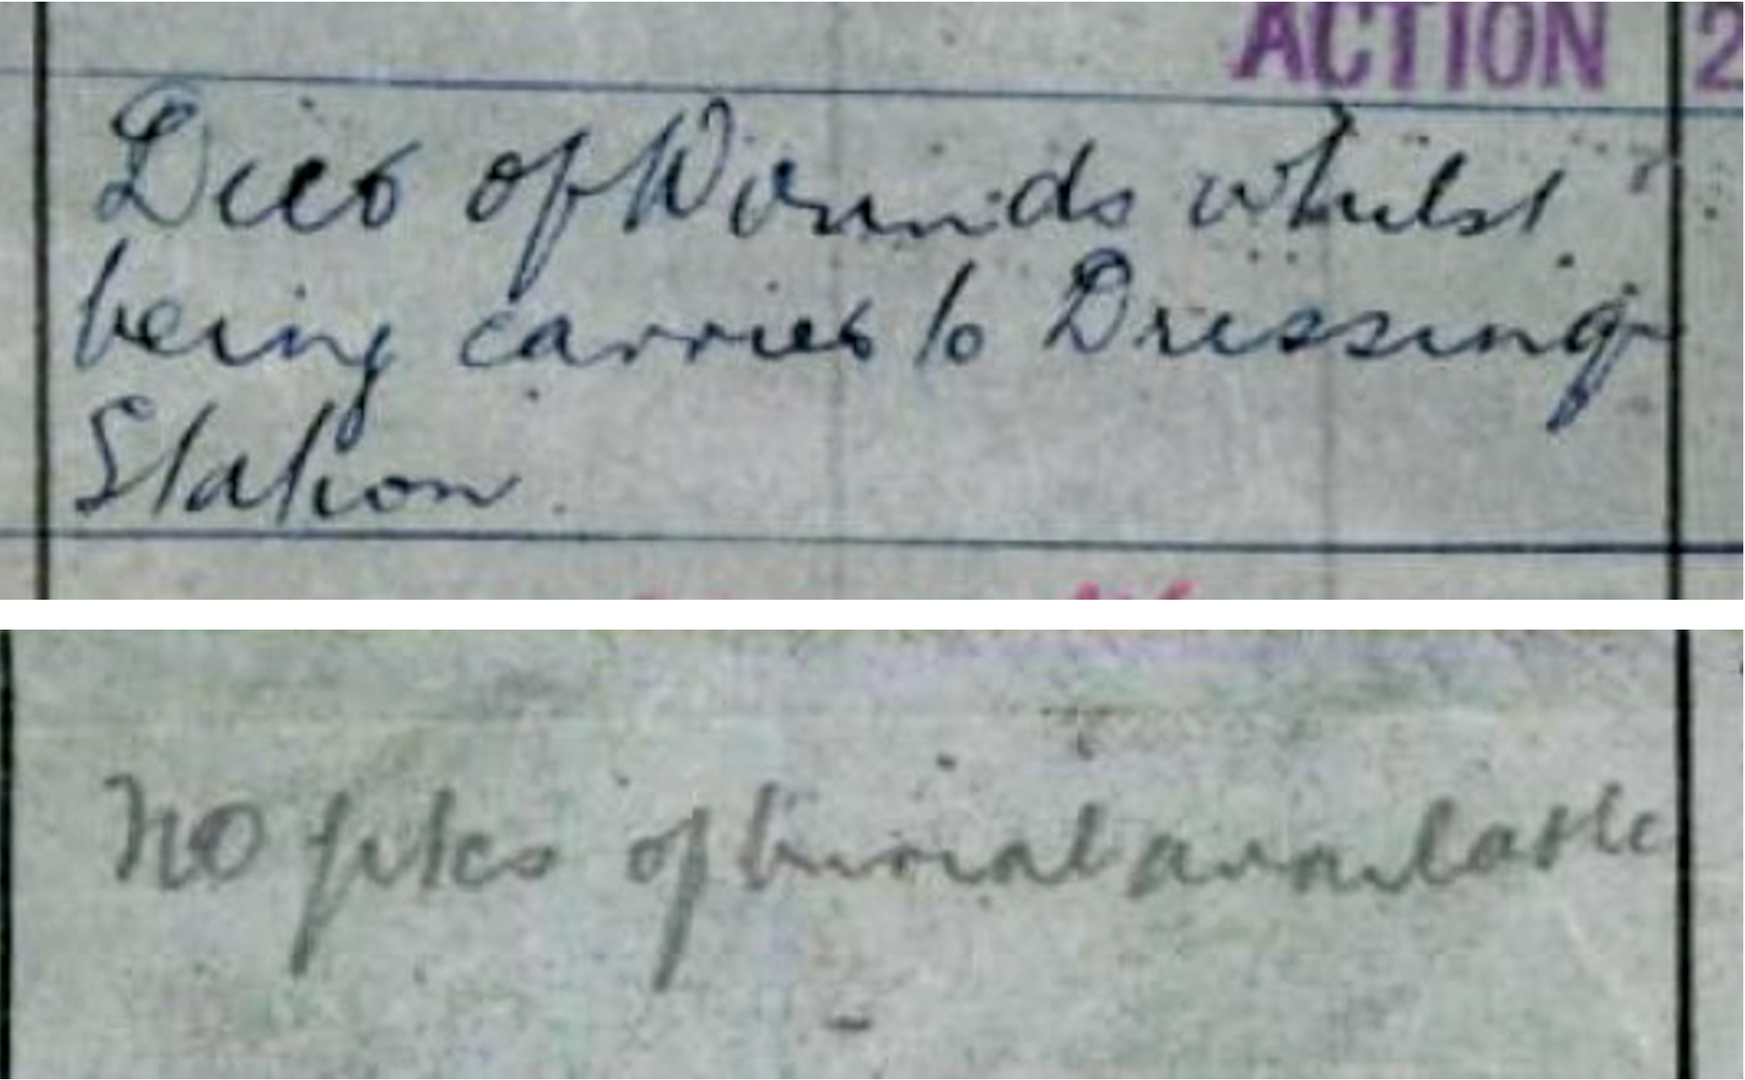 ACTION 2
Died of Wounds whilst
being carried to Dressing
Station.
No ptcs of burial available